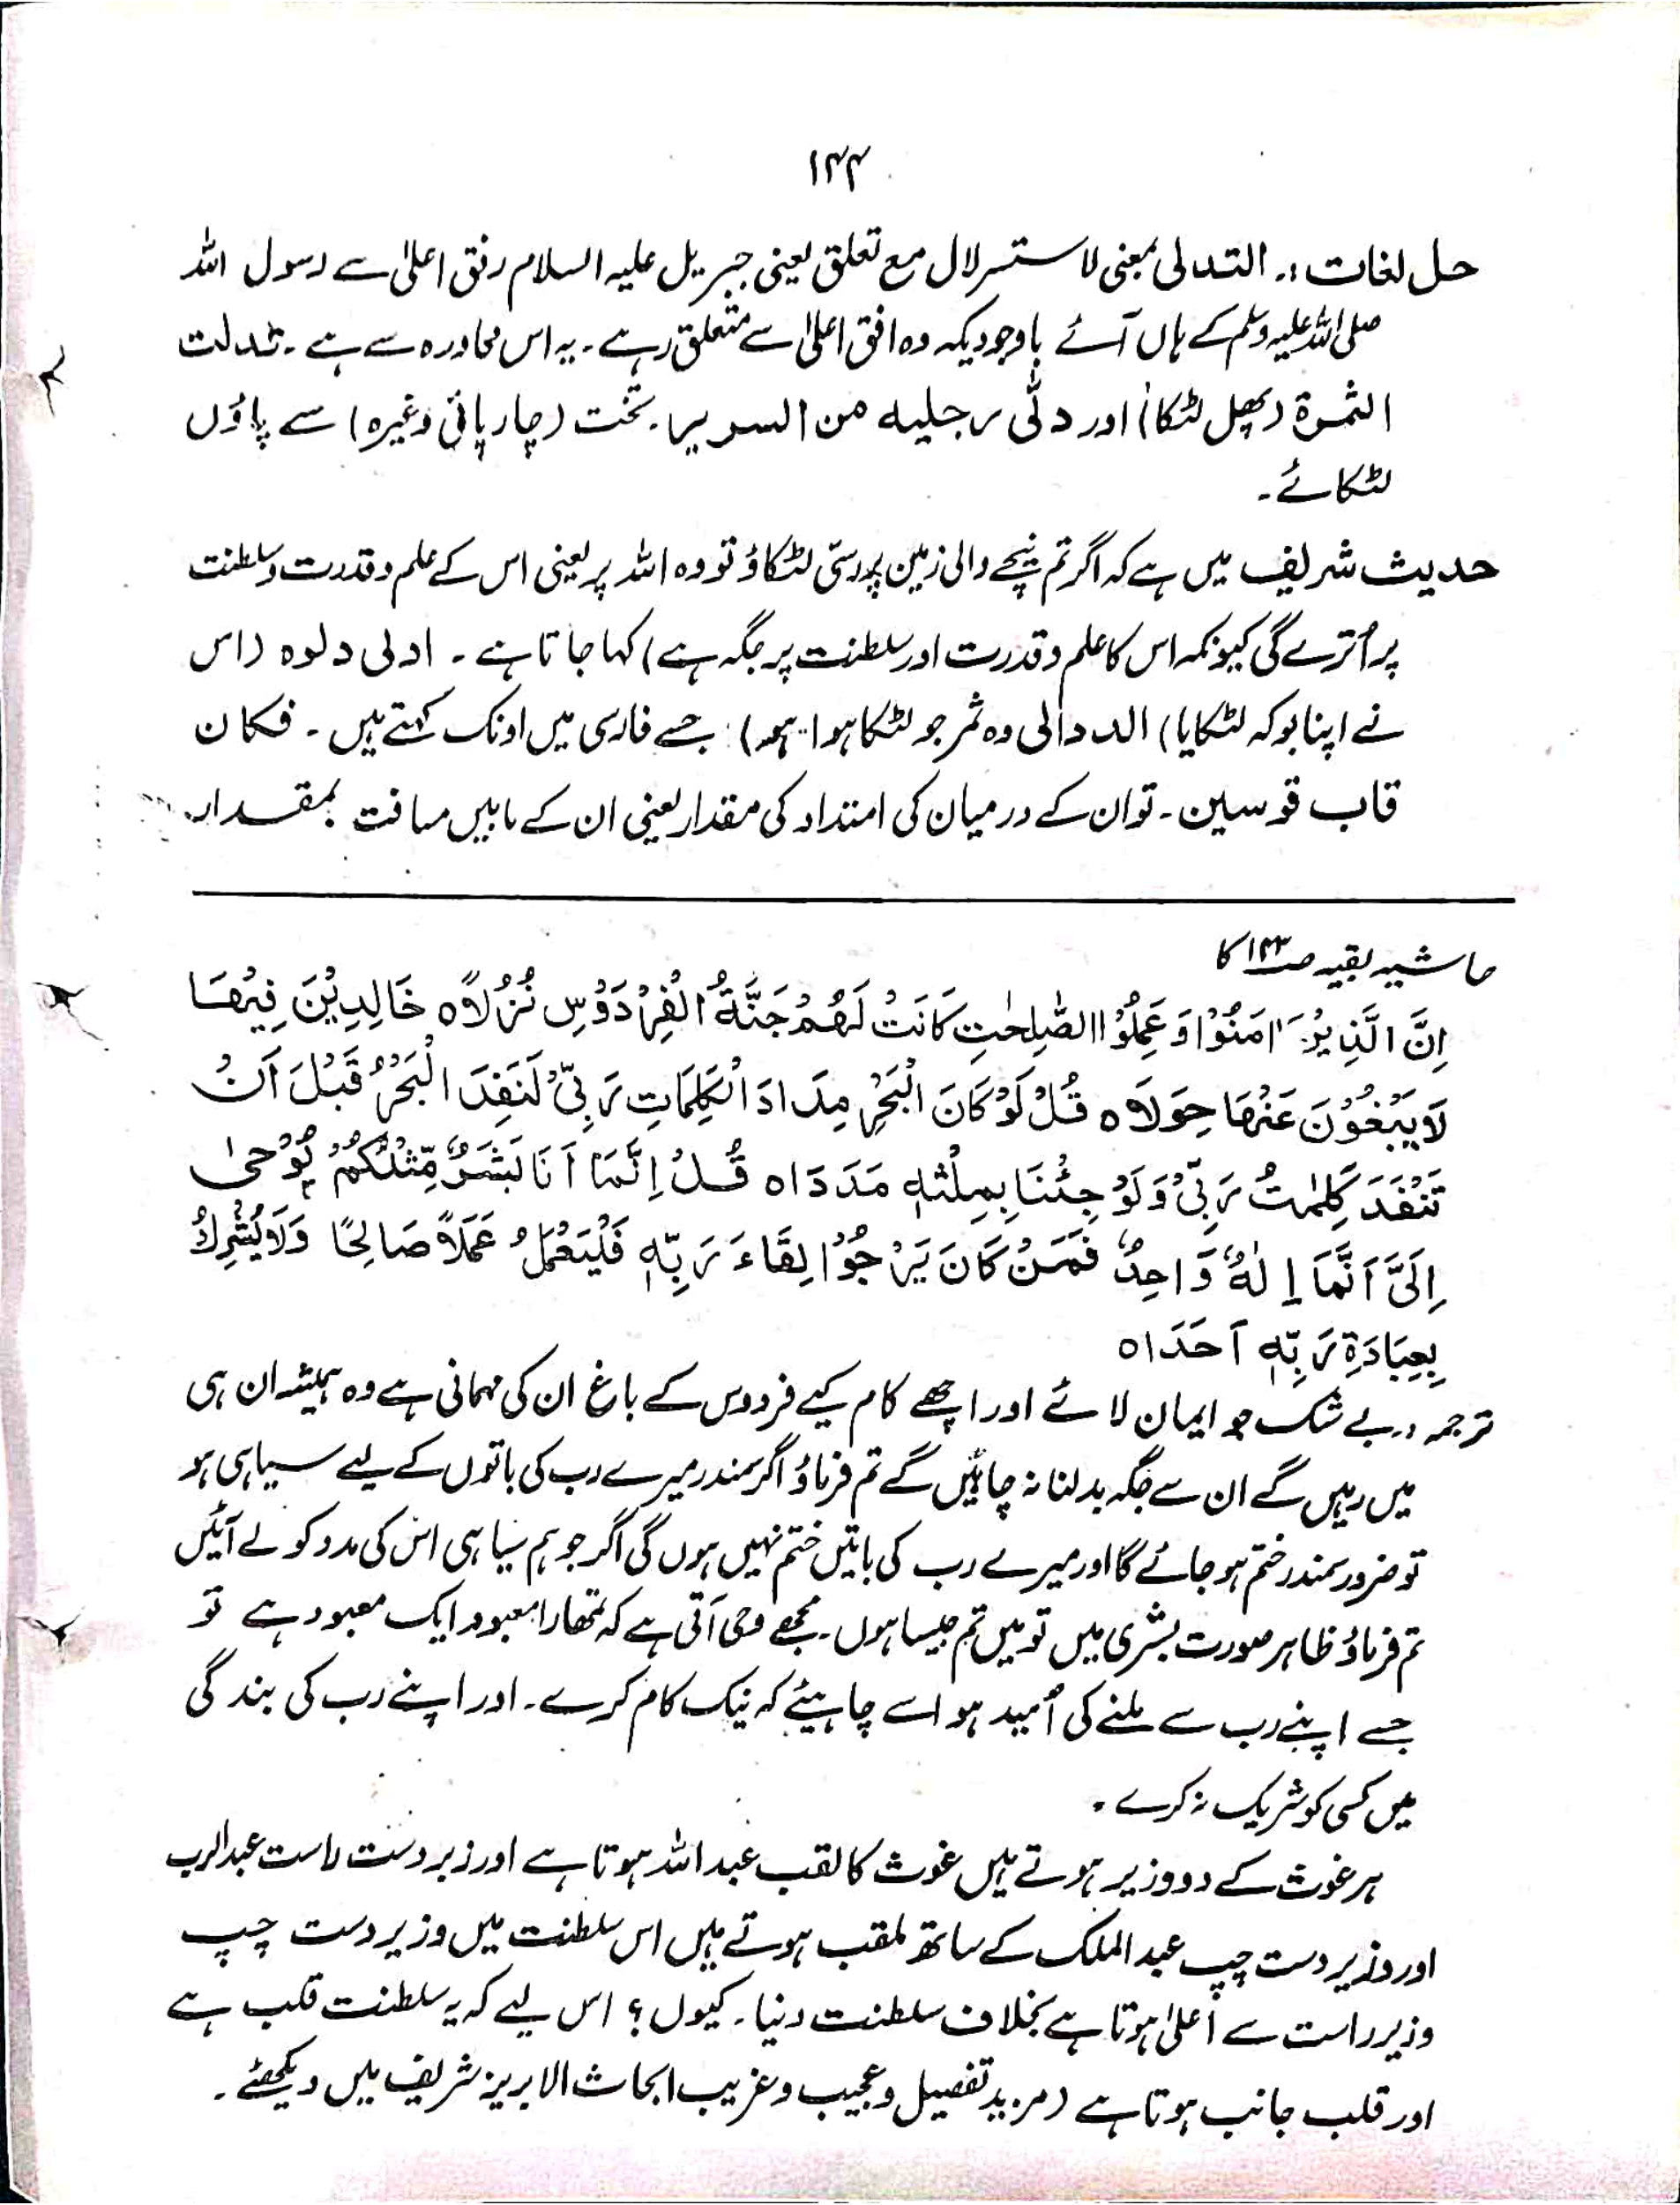 ۱۴۴
حل لغات :۔ التدلی بمعنی لاستسرلال مع تعلق یعنی جبریل علیہ السلام رفق اعلیٰ سے رسول اللہ
صلی اللہ علیہ وسلم کے ہاں آئے باوجودیکہ وہ افق اعلیٰ سے متعلق رہے۔ یہ اس محاورہ سے ہے۔ تدلت
الثمرۃ (پھل لٹکا) اور دلّٰی رجلیہ من السریر۔ تخت (چارپائی وغیرہ) سے پاؤں
لٹکائے۔
حدیث شریف میں ہے کہ اگر تم نیچے والی زمین پر رسّی لٹکاؤ تو وہ اللہ پر یعنی اس کے علم و قدرت و سلطنت
پر اُترے گی کیونکہ اس کا علم و قدرت اور سلطنت ہر جگہ ہے) کہا جاتا ہے۔ ادلی دلوہ (اس
نے اپنا بوکہ لٹکایا) الدوالی وہ ثمر جو لٹکا ہوا ہو) جسے فارسی میں اونک کہتے ہیں۔ فکان
قاب قوسین۔ تو ان کے درمیان کی امتداد کی مقدار یعنی ان کے مابیں مسافت بمقدار
حاشیہ بقیہ صـ۱۴۳ کا
اِنَّ الَّذِیْنَ اٰمَنُوْا وَعَمِلُوا الصّٰلِحٰتِ کَانَتْ لَھُمْ جَنَّۃُ الْفِرْدَوْسِ نُزُلًاہ خَالِدِیْنَ فِیْھَا
لَا یَبْغُوْنَ عَنْھَا حِوَلًاہ قُلْ لَوْ کَانَ الْبَحْرُ مِدَادًا لِّکَلِمَاتِ رَبِّیْ لَنَفِدَ الْبَحْرُ قَبْلَ اَنْ
تَنْفَدَ کَلِمٰتُ رَبِّیْ وَلَوْ جِئْنَا بِمِثْلِہٖ مَدَدًاہ قُلْ اِنَّمَا اَنَا بَشَرٌ مِّثْلُکُمْ یُوْحٰی
اِلَیَّ اَنَّمَا اِلٰہٌ وَّاحِدٌ فَمَنْ کَانَ یَرْجُوْا لِقَاءَ رَبِّہٖ فَلْیَعْمَلْ عَمَلًا صَالِحًا وَلَا یُشْرِکْ
بِعِبَادَۃِ رَبِّہٖ اَحَدًاہ
ترجمہ :۔ بے شک جو ایمان لائے اور اچھے کام کیے فردوس کے باغ ان کی مہمانی ہے وہ ہمیشہ ان ہی
میں رہیں گے ان سے جگہ بدلنا نہ چاہیں گے تم فرماؤ اگر سمندر میرے رب کی باتوں کے لیے سیاہی ہو
تو ضرور سمندر ختم ہو جائے گا اور میرے رب کی باتیں ختم نہیں ہوں گی اگر جو ہم سیاہی اس کی مدد کو لے آئیں
تم فرماؤ ظاہر صورت بشری میں تو میں تم جیسا ہوں۔ مجھے وحی آتی ہے کہ تمھارا معبود ایک معبود ہے تو
جسے اپنے رب سے ملنے کی اُمید ہو اسے چاہیئے کہ نیک کام کرے۔ اور اپنے رب کی بندگی
میں کسی کو شریک نہ کرے۔
ہر غوث کے دو وزیر ہوتے ہیں غوث کا لقب عبداللہ ہوتا ہے اور زبر دست راست عبدالرب
اور وزیر دست چپ عبدالملک کے ساتھ ملقب ہوتے ہیں اس سلطنت میں وزیر دست چپ
وزیر راست سے اعلیٰ ہوتا ہے بخلاف سلطنت دنیا۔ کیوں؟ اس لیے کہ یہ سلطنت قلب ہے
اور قلب جانب ہوتا ہے (مزید تفصیل و عجیب و غریب ابحاث الابریز شریف میں دیکھئے۔